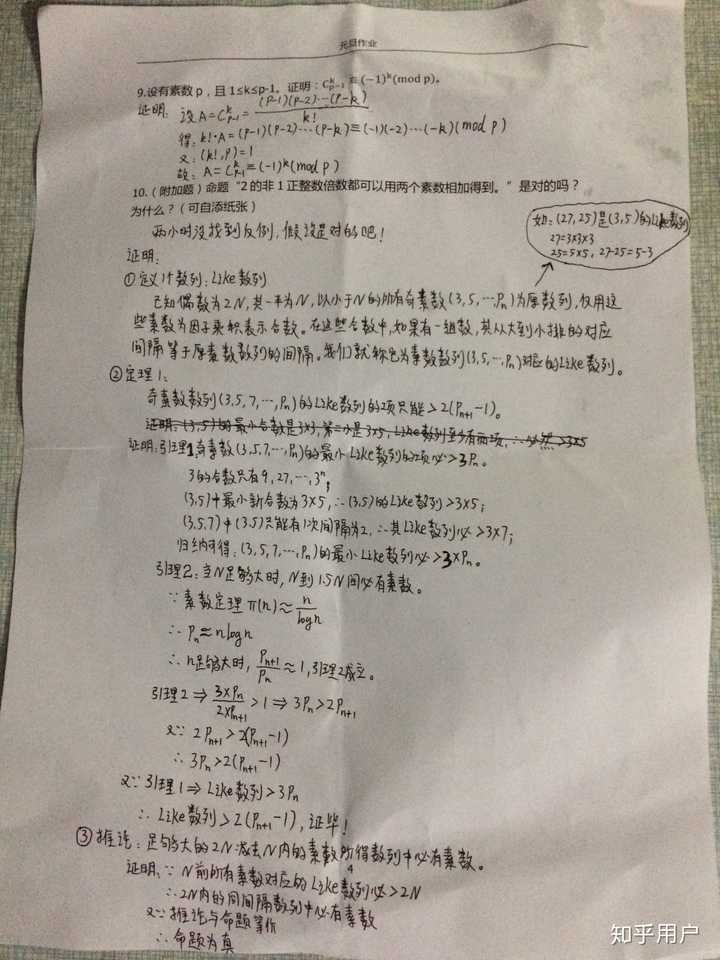 元旦作业
9.设有素数 p，且 1≤k≤p-1。证明：C_{p-1}^k ≡ (−1)^k(mod p)。
证明: 设A=C_{p-1}^k=(P-1)(P-2)…(P-k)/k!
得: k!·A=(P-1)(P-2)…(P-k)≡(-1)(-2)…(-k)(mod p)
又: (k!,P)=1
故: A=C_{p-1}^k≡(-1)^k(mod p)
10.（附加题）命题“2 的非 1 正整数倍数都可以用两个素数相加得到。”是对的吗？
为什么？（可自添纸张）
两小时没找到反例，假设是对的吧！
如:(27,25)是(3,5)的Like数列
27=3×3×3
25=5×5, 27-25=5-3
证明:
①定义计数列: Like数列
已知偶数为2N,其一半为N,以小于N的所有奇素数(3,5,…Pn)为厚数列,仅用这
些素数为因子乘积表示合数。在这些合数中,如果有一组数,其从大到小排的对应
间隔等于厚素数数列的间隔。我们就称它为素数数列(3,5,…Pn)对应的Like数列。
②定理1:
奇素数数列(3,5,7,…,Pn)的Like数列的2项只能>2(Pn+1-1)。
证明:(3,5)的最小合数是3×3,第二小是3×5,Like数列至少有两项,∴必然>3×5
证明:引理1:奇素数(3,5,7,…,Pn)的最小Like数列的2项必>3Pn。
3的合数只有9,27,…,3^n;
(3,5)中最小新合数为3×5,∴(3,5)的Like数列>3×5;
(3,5,7)中(3,5)只能有1次间隔为2,∴其Like数列必>3×7;
归纳可得:(3,5,7,…,Pn)的最小Like数列必>3×Pn。
引理2:当N足够大时,N到1.5N间必有素数。
∵素数定理π(n)≈n/logn
∴Pn≈nlogn
∴n足够大时,Pn+1/Pn≈1,引理2成立。
引理2⇒3×Pn/2×Pn+1>1⇒3Pn>2Pn+1
又∵2Pn+1>2(Pn+1-1)
∴3Pn>2(Pn+1-1)
又∵引理1⇒Like数列>3Pn
∴Like数列>2(Pn+1-1),证毕!
③推论:足够大的2N减去N内的素数所得数列中必有素数。
4
证明:∵N前所有素数对应的Like数列必>2N
∴2N内的同间隔数列中必有素数
又∵推论与命题等价
∴命题为真
知乎用户